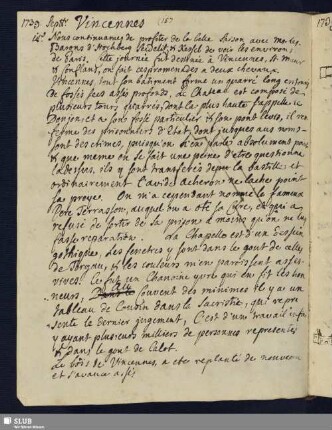 1729 Septbr. Vincennes
(167)
Nous continuames de profiter de la belle Saison avec
de voir les environs
de Paris. Cette journée fut destinée à Vincennes,
on fait ces promenades a deux chevaux.
Vincennes, dont les batiments forme un quarré long entouré
de fossés secs assés profonds. Le Chateau est composé de
plusieurs tours quarrées, dont la plus haute s'appelle le
Donjon, et a son fossé particulier, son pont levis, il ren
ferme des prisonniers d'Etat, dont jusques aux noms
sont des crimes, puisqu'on n'en parle absolument pas
que meme on se fait une peine d'etre questionné
la dessus, ils y sont transferés de la bastille; et
ordinairement l'avide Acheron ne lache point
sa proye. On m'a cependant nommé le fameux
Pere Terrasson, auquel on a oté sa Cure, et qui a
refusé de sortir de sa prison a moins qu'on ne luy
fasse reparation. La Chapelle est d'un dessein
gothique. Les fenetres y sont dans le gout de celles
de et les couleurs m'en parroissent assés
vives. Ce fut un Chanoine qui en fit les hon
neurs, souvent des minimes il y a un
tableau de Cousin dans la Sacristie, qui repre
sente le dernier jugement, C'est d'un travail infini
y ayant plusieurs milliers de personnes representés
dans le gout de Calot.
Le bois de Vincennes, a eté replanté de nouveau
et s'avance assés
SLUB